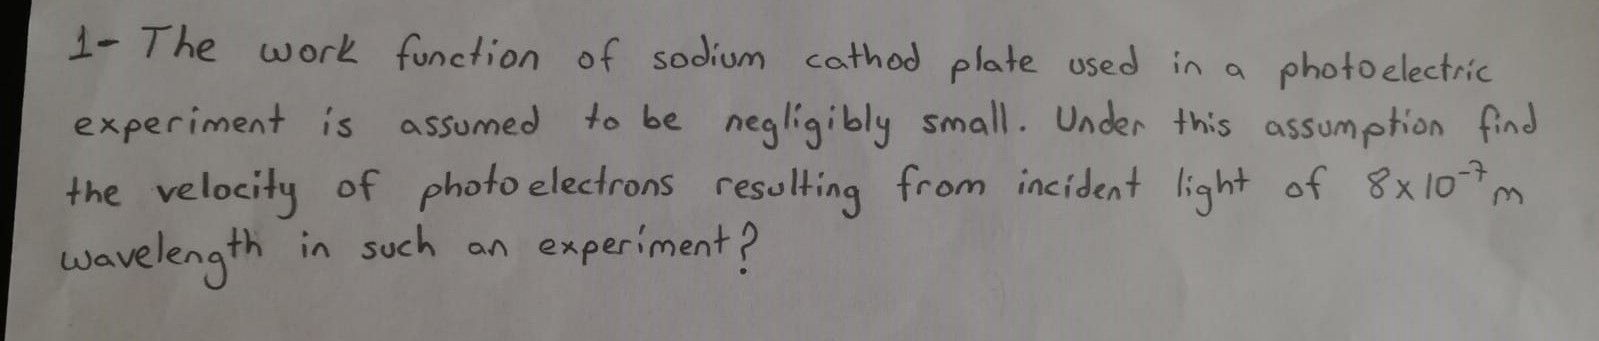 1- The work function of sodium cathod plate used in a photoelectric
experiment is assumed to be negligibly small. Under this assumption find
the velocity of photoelectrons resulting from incident light of 8x10⁻⁷m
wavelength in such an experiment?